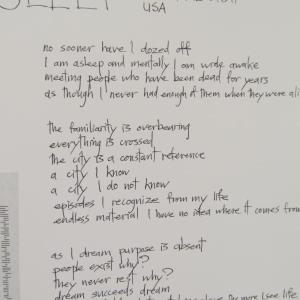 SLEEP
USA
no sooner have I dozed off
I am asleep and mentally I am wide awake
meeting people who have been dead for years
as though I never had enough of them when they were ali
the familiarity is overbearing
everything is crossed
the city is a constant reference
a city I know
a city I do not know
episodes I recognize from my life
endless material I have no idea where it comes from
as I dream purpose is absent
people exist why?
they never rest why?
dream succeeds dream